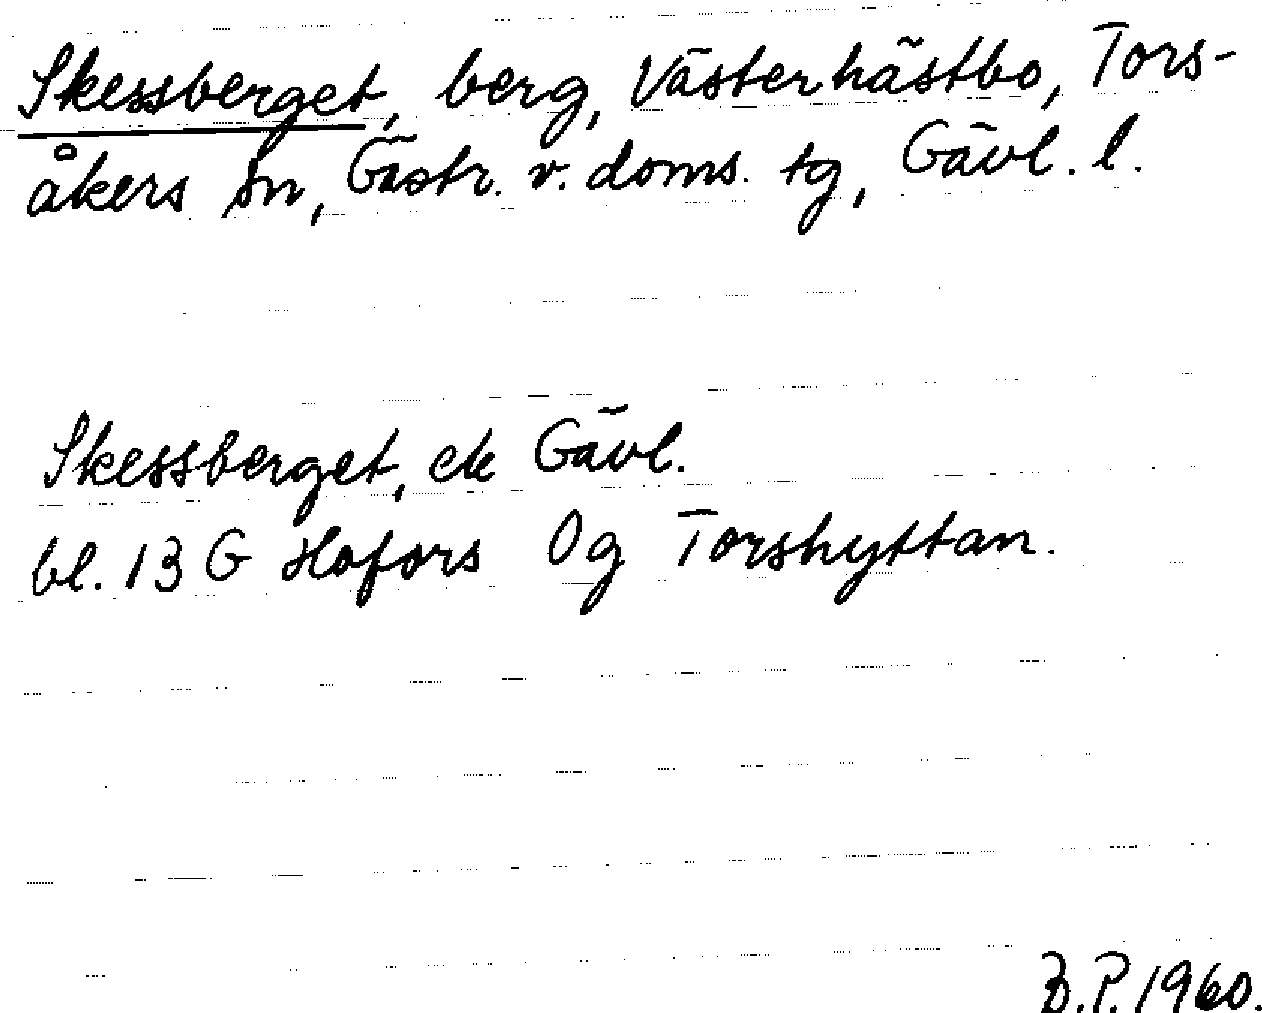 Skessberget, berg, Västerhästbo, Tors-
åkers sn, Gästr. v. doms. tg, Gävl. l.
Skessberget, ek Gävl.
bl. 13 G Hofors 0g Torshyttan.
B.P. 1960.